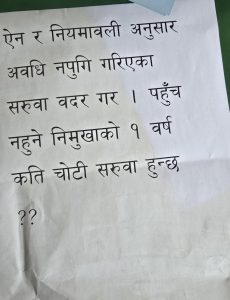 ऐन र नियमावली अनुसार
अवधि नपुगि गरिएका
सरुवा वदर गर । पहुँच
नहुने निमुखाको १ वर्ष
कति चोटी सरुवा हुन्छ
??